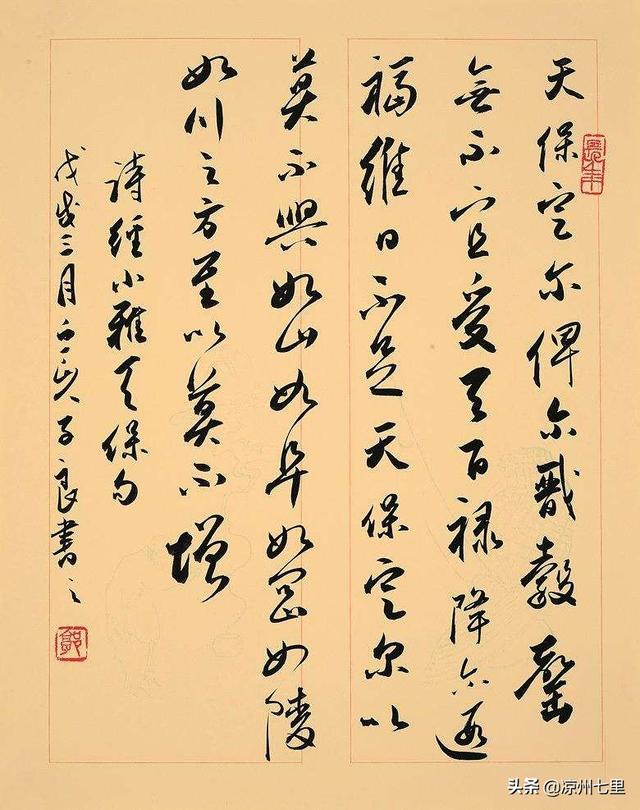 天保定尔俾尔戩穀罄
無不宜受天百禄降尔遐
福維日不足天保定尔以
莫不興如山如阜如岡如陵
如川之方至以莫不增
詩經小雅天保句
戊戌三月 子良書之
头条 @凉州七里